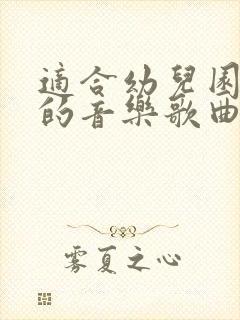 適合幼兒園
的音樂歌曲
雾夏之心